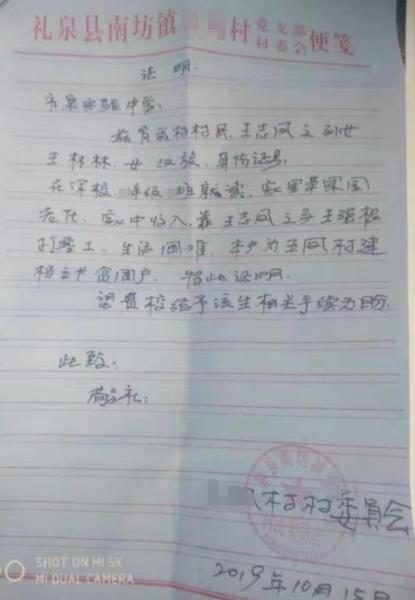 礼泉县南坊镇 村党支部村委会便笺
证明.
市泉实验中学:
兹有我 村村民、王志凤之孙女
王 林、女 汉族、身份证号
在贵校、 年级 班就读、家
、家中收入、靠王志凤之子王强
打零工、生活困难、本户为 村建
档立卡贫困户. 特此证明.
望贵校给予该生相关手续为盼.
此致:
敬礼:
县南坊镇
村村委员会
2019年10月15日
SHOT ON MI 5X
MI DUAL CAMERA